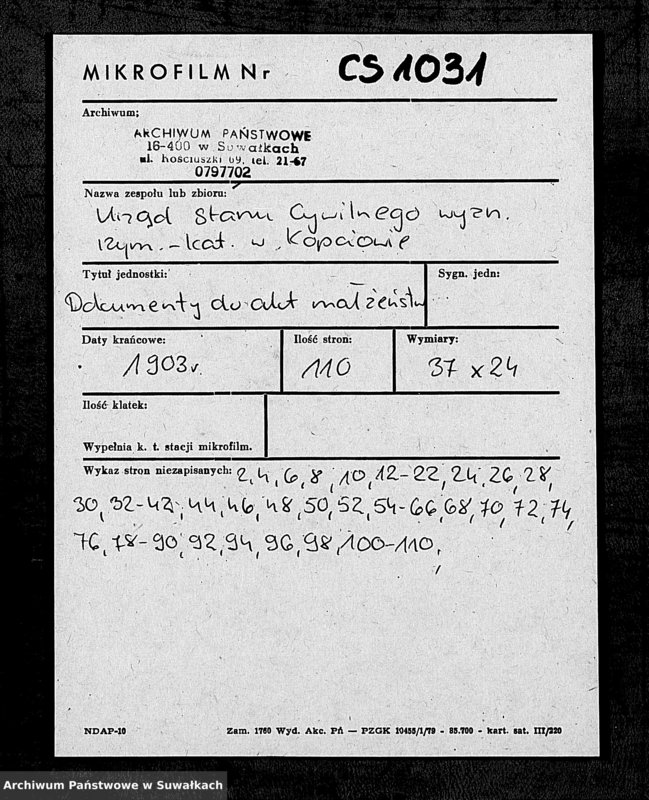 MIKROFILM Nr CS 1031
Archiwum;
ARCHIWUM PAŃSTWOWE
16-400 w Suwałkach
ul. Kościuszki 69, tel. 21-67
0797702
Nazwa zespołu lub zbioru:
Urząd Stanu Cywilnego wyzn.
rzym.-kat. w Kopciowie
Tytuł jednostki:
Sygn. jedn:
Dokumenty do akt małżeństw
Daty krańcowe:
1903 r.
Ilość stron:
110
Wymiary:
37 x 24
Ilość klatek:
Wypełnia k. t. stacji mikrofilm.
Wykaz stron niezapisanych: 2, 4, 6, 8, 10, 12-22, 24, 26, 28,
30, 32-42, 44, 46, 48, 50, 52, 54-66, 68, 70, 72, 74,
76, 78-90, 92, 94, 96, 98, 100-110,
NDAP-10
Zam. 1760 Wyd. Akc. Pń — PZGK 10455/1/79 - 85.700 - kart. sat. III/220
Archiwum Państwowe w Suwałkach